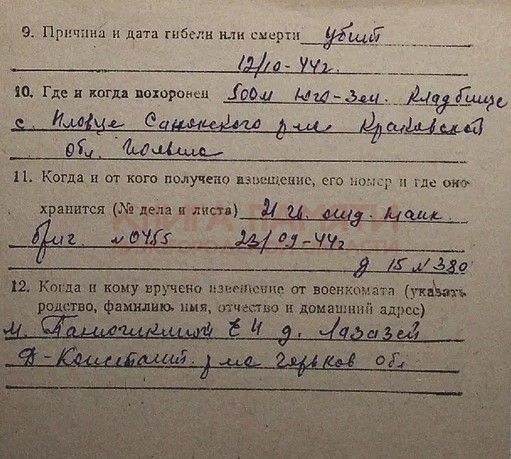 9. Причина и дата гибели или смерти убит
12/10-44г.
10. Где и когда похоронен 500м Юго-Зап. Кладбище
с. Пловце Санокского р-на Краковской
обл. Польша
11. Когда и от кого получено извещение, его номер и где оно
хранится (№ дела и листа) 21 гв. отд. танк.
бриг. №0455 23/09-44г
д 15 №380
КНИГА ПАМЯТИ
НИЖЕГОРОДСКОЙ ОБЛАСТИ
12. Когда и кому вручено извещение от военкомата (указать
родство, фамилию, имя, отчество и домашний адрес)
м. Е И д. Лазазей
Д-Констант. р-на Горьков обл